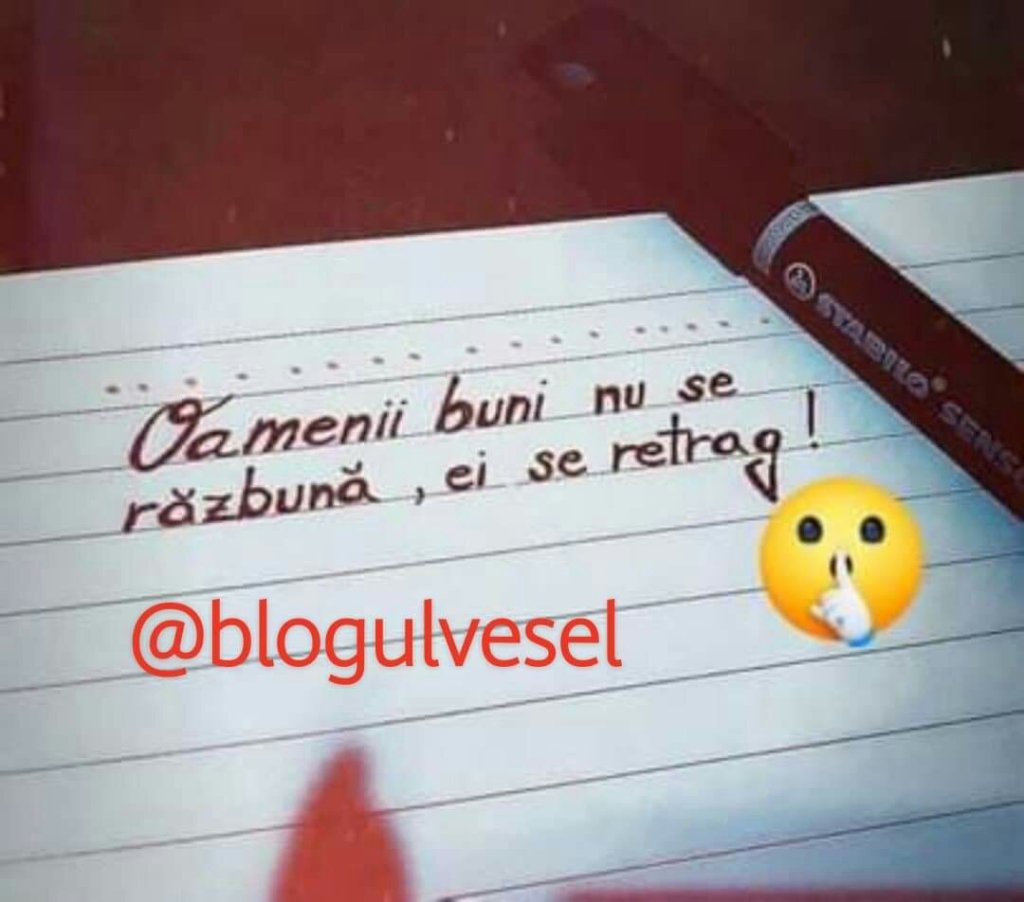 STABILO® SENSO
Oamenii buni nu se
răzbună, ei se retrag!
@blogulvesel